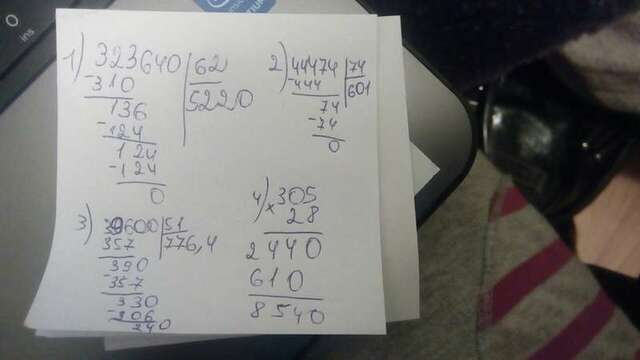 ins
1) 323640 62
-310 5220
136
-124
124
-124
0
2) 44474 74
-444 601
74
-74
0
3) 39600 51
357 776,4
390
-357
330
-206
240
4) 305
× 28
2440
610
8540